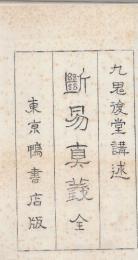 九鬼復堂講述
斷易真義 全
東京鴨書店版